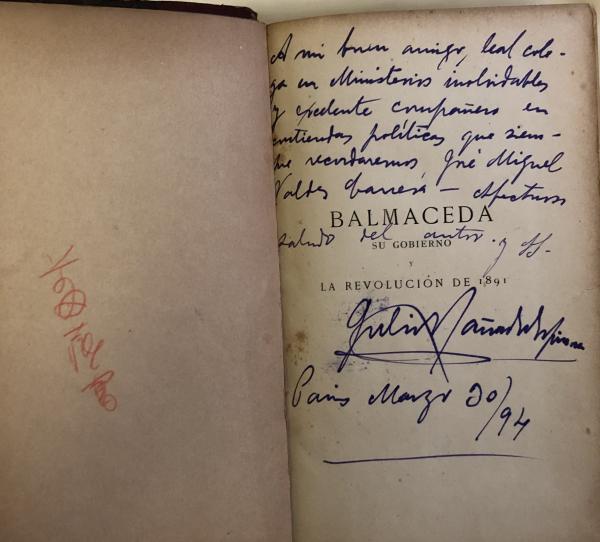 A mi buen amigo, leal cole-
ga en Ministerios inolvidables
y excelente compañero en
contiendas políticas que siem-
pre recordaremos, José Miguel
Valdes Carrera — Afectuoso
BALMACEDA
saludo del autor. y
SU GOBIERNO
Y
LA REVOLUCIÓN DE 1891
Julio Bañados Espinosa
Paris Marzo 20/94